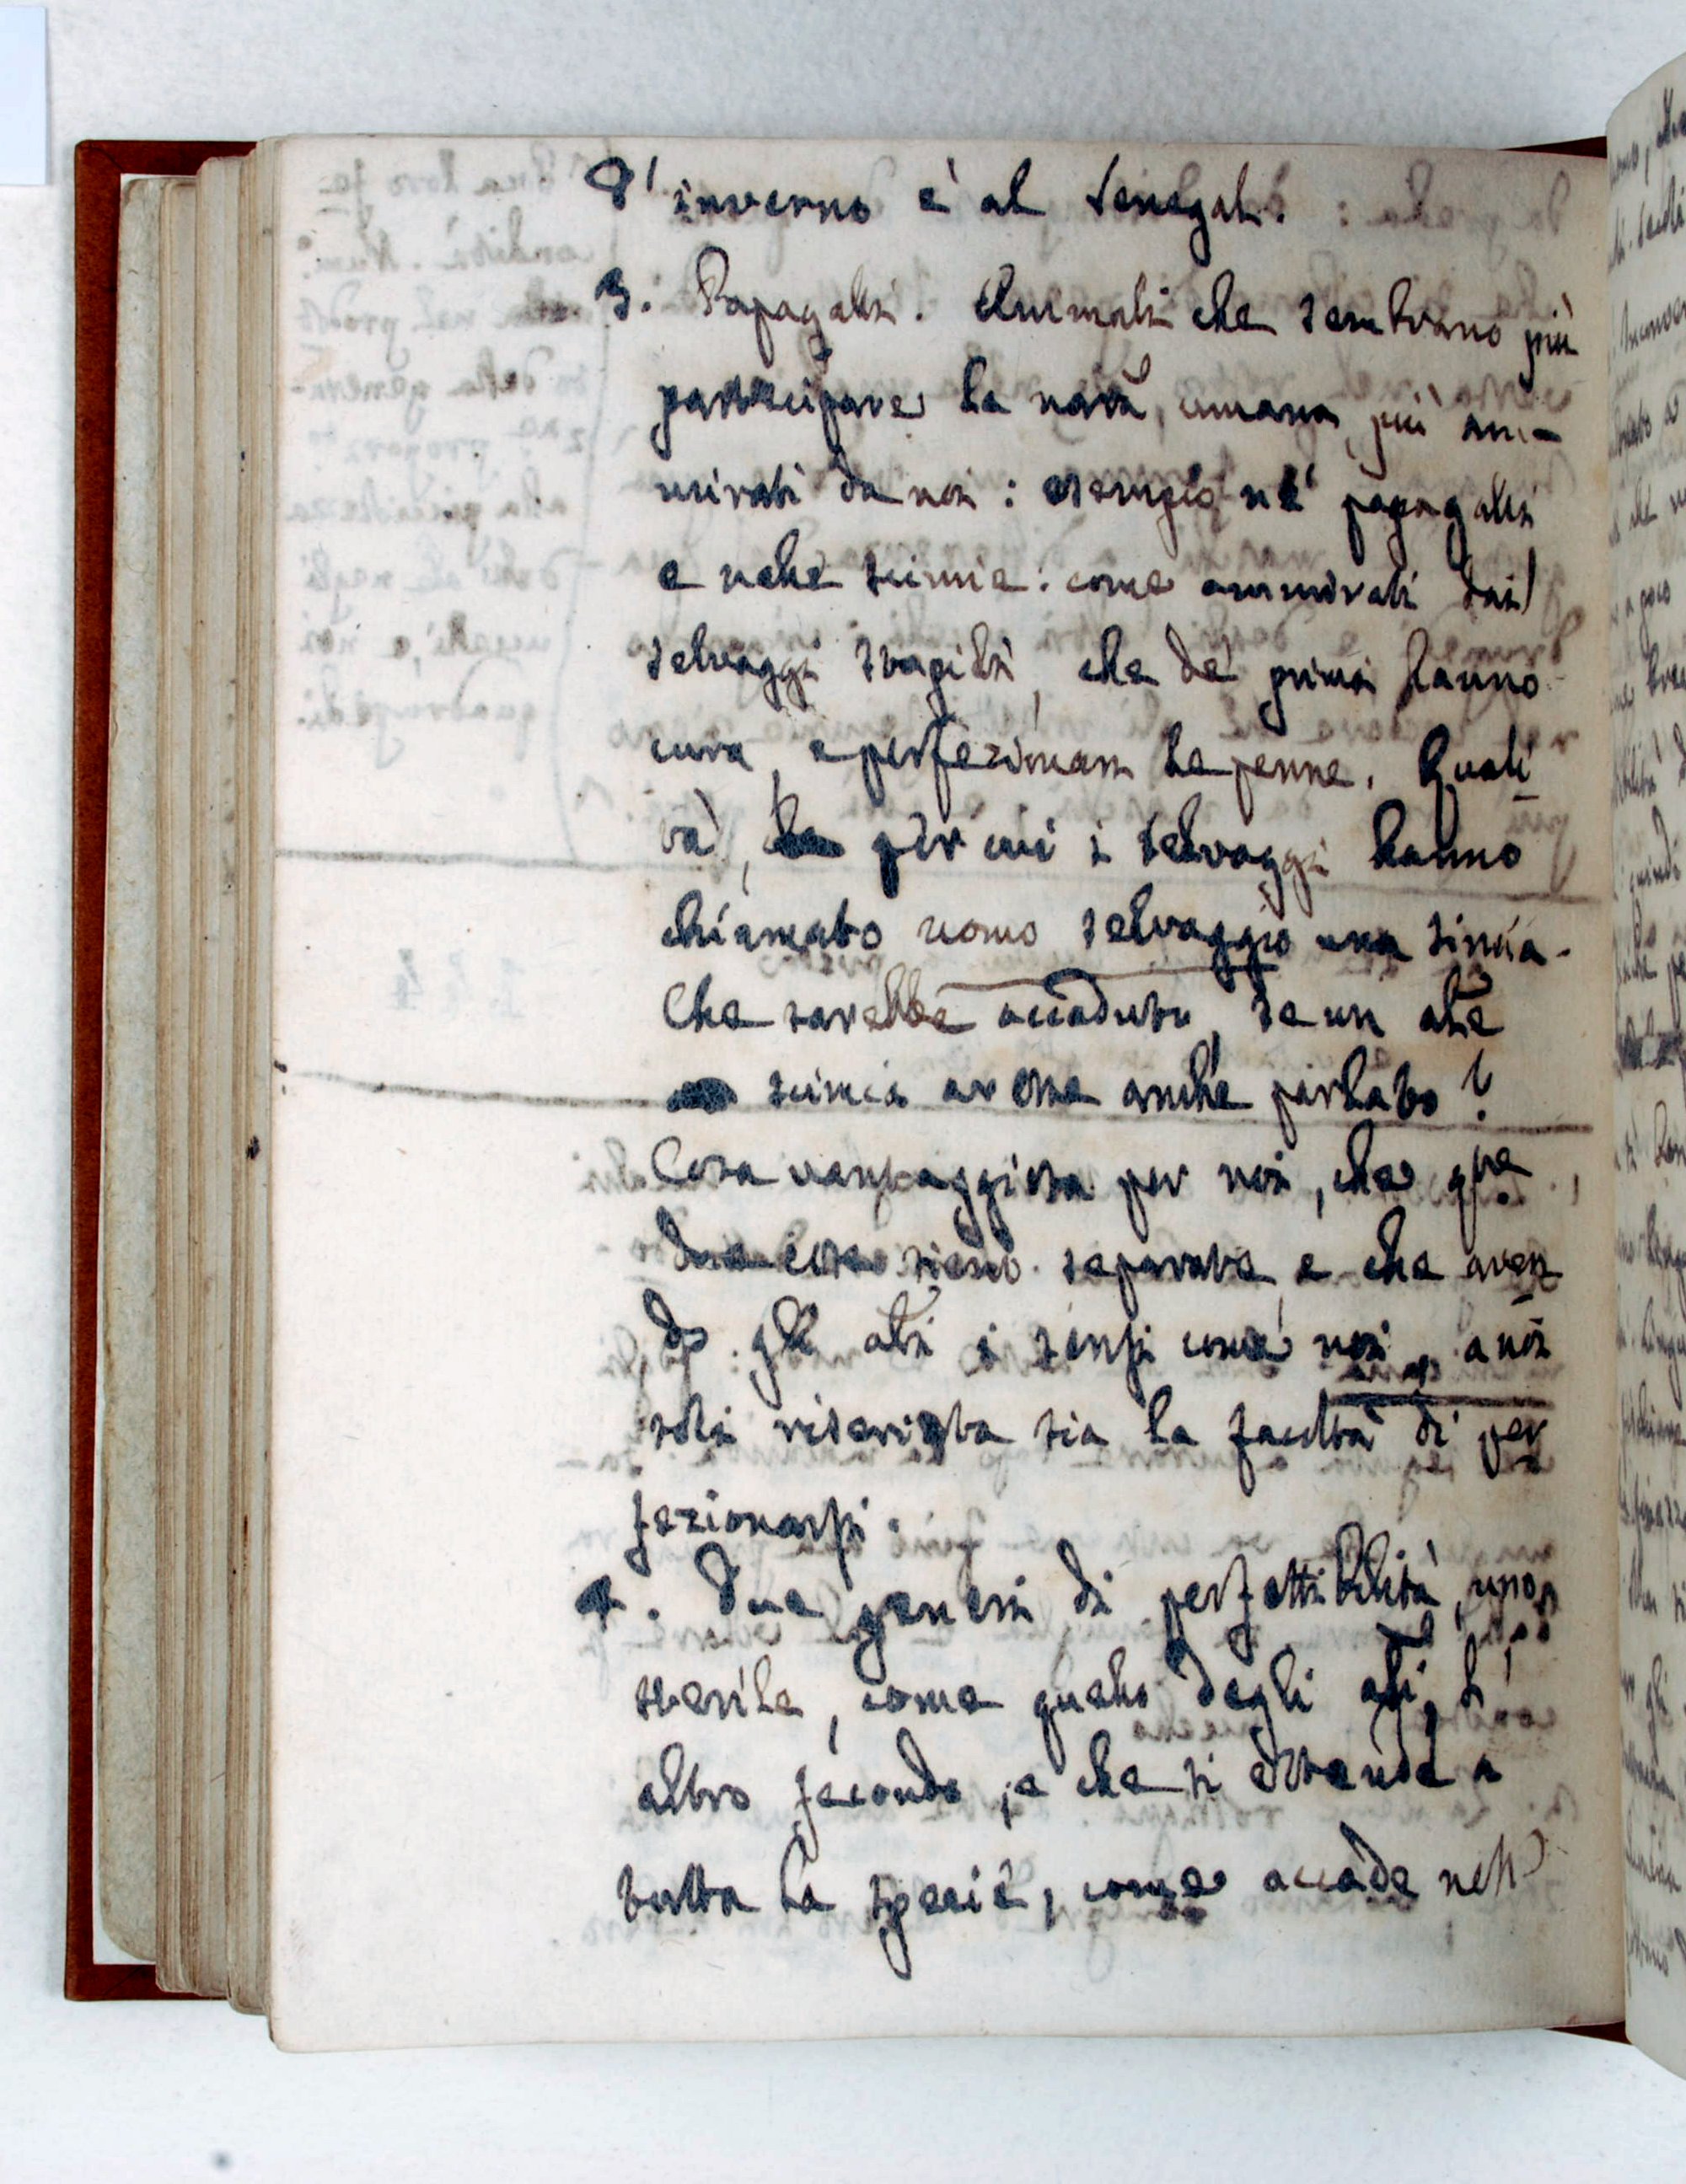 d'inverno è al Senegal.
3. Papagalli. Animali che sembrano più
partecipare la natã, umana, più am-
mirati da noi: esempio ne' papagalli
e nelle scimie: come ammirati dai
selvaggi stupidi, che de' primi hanno
cura, e perfezionan le penne. Quali
tà, per cui i selvaggi hanno
chiamato uomo selvaggio una simia.
Che sarebbe accaduto, se un altã
scimia avesse anche parlato?
Cosa vantaggiosa per noi, che qste
due cose sieno separate, e che aven
do gli ali i sensi come noi, a noi
soli riserbata sia la facoltà di per
fezionarsi.
4. Due generi di perfettibilità, uno
sterile, come quello degli ali, l'
altro fecondo, e che si estende a
tutta la specie, come accade nell'